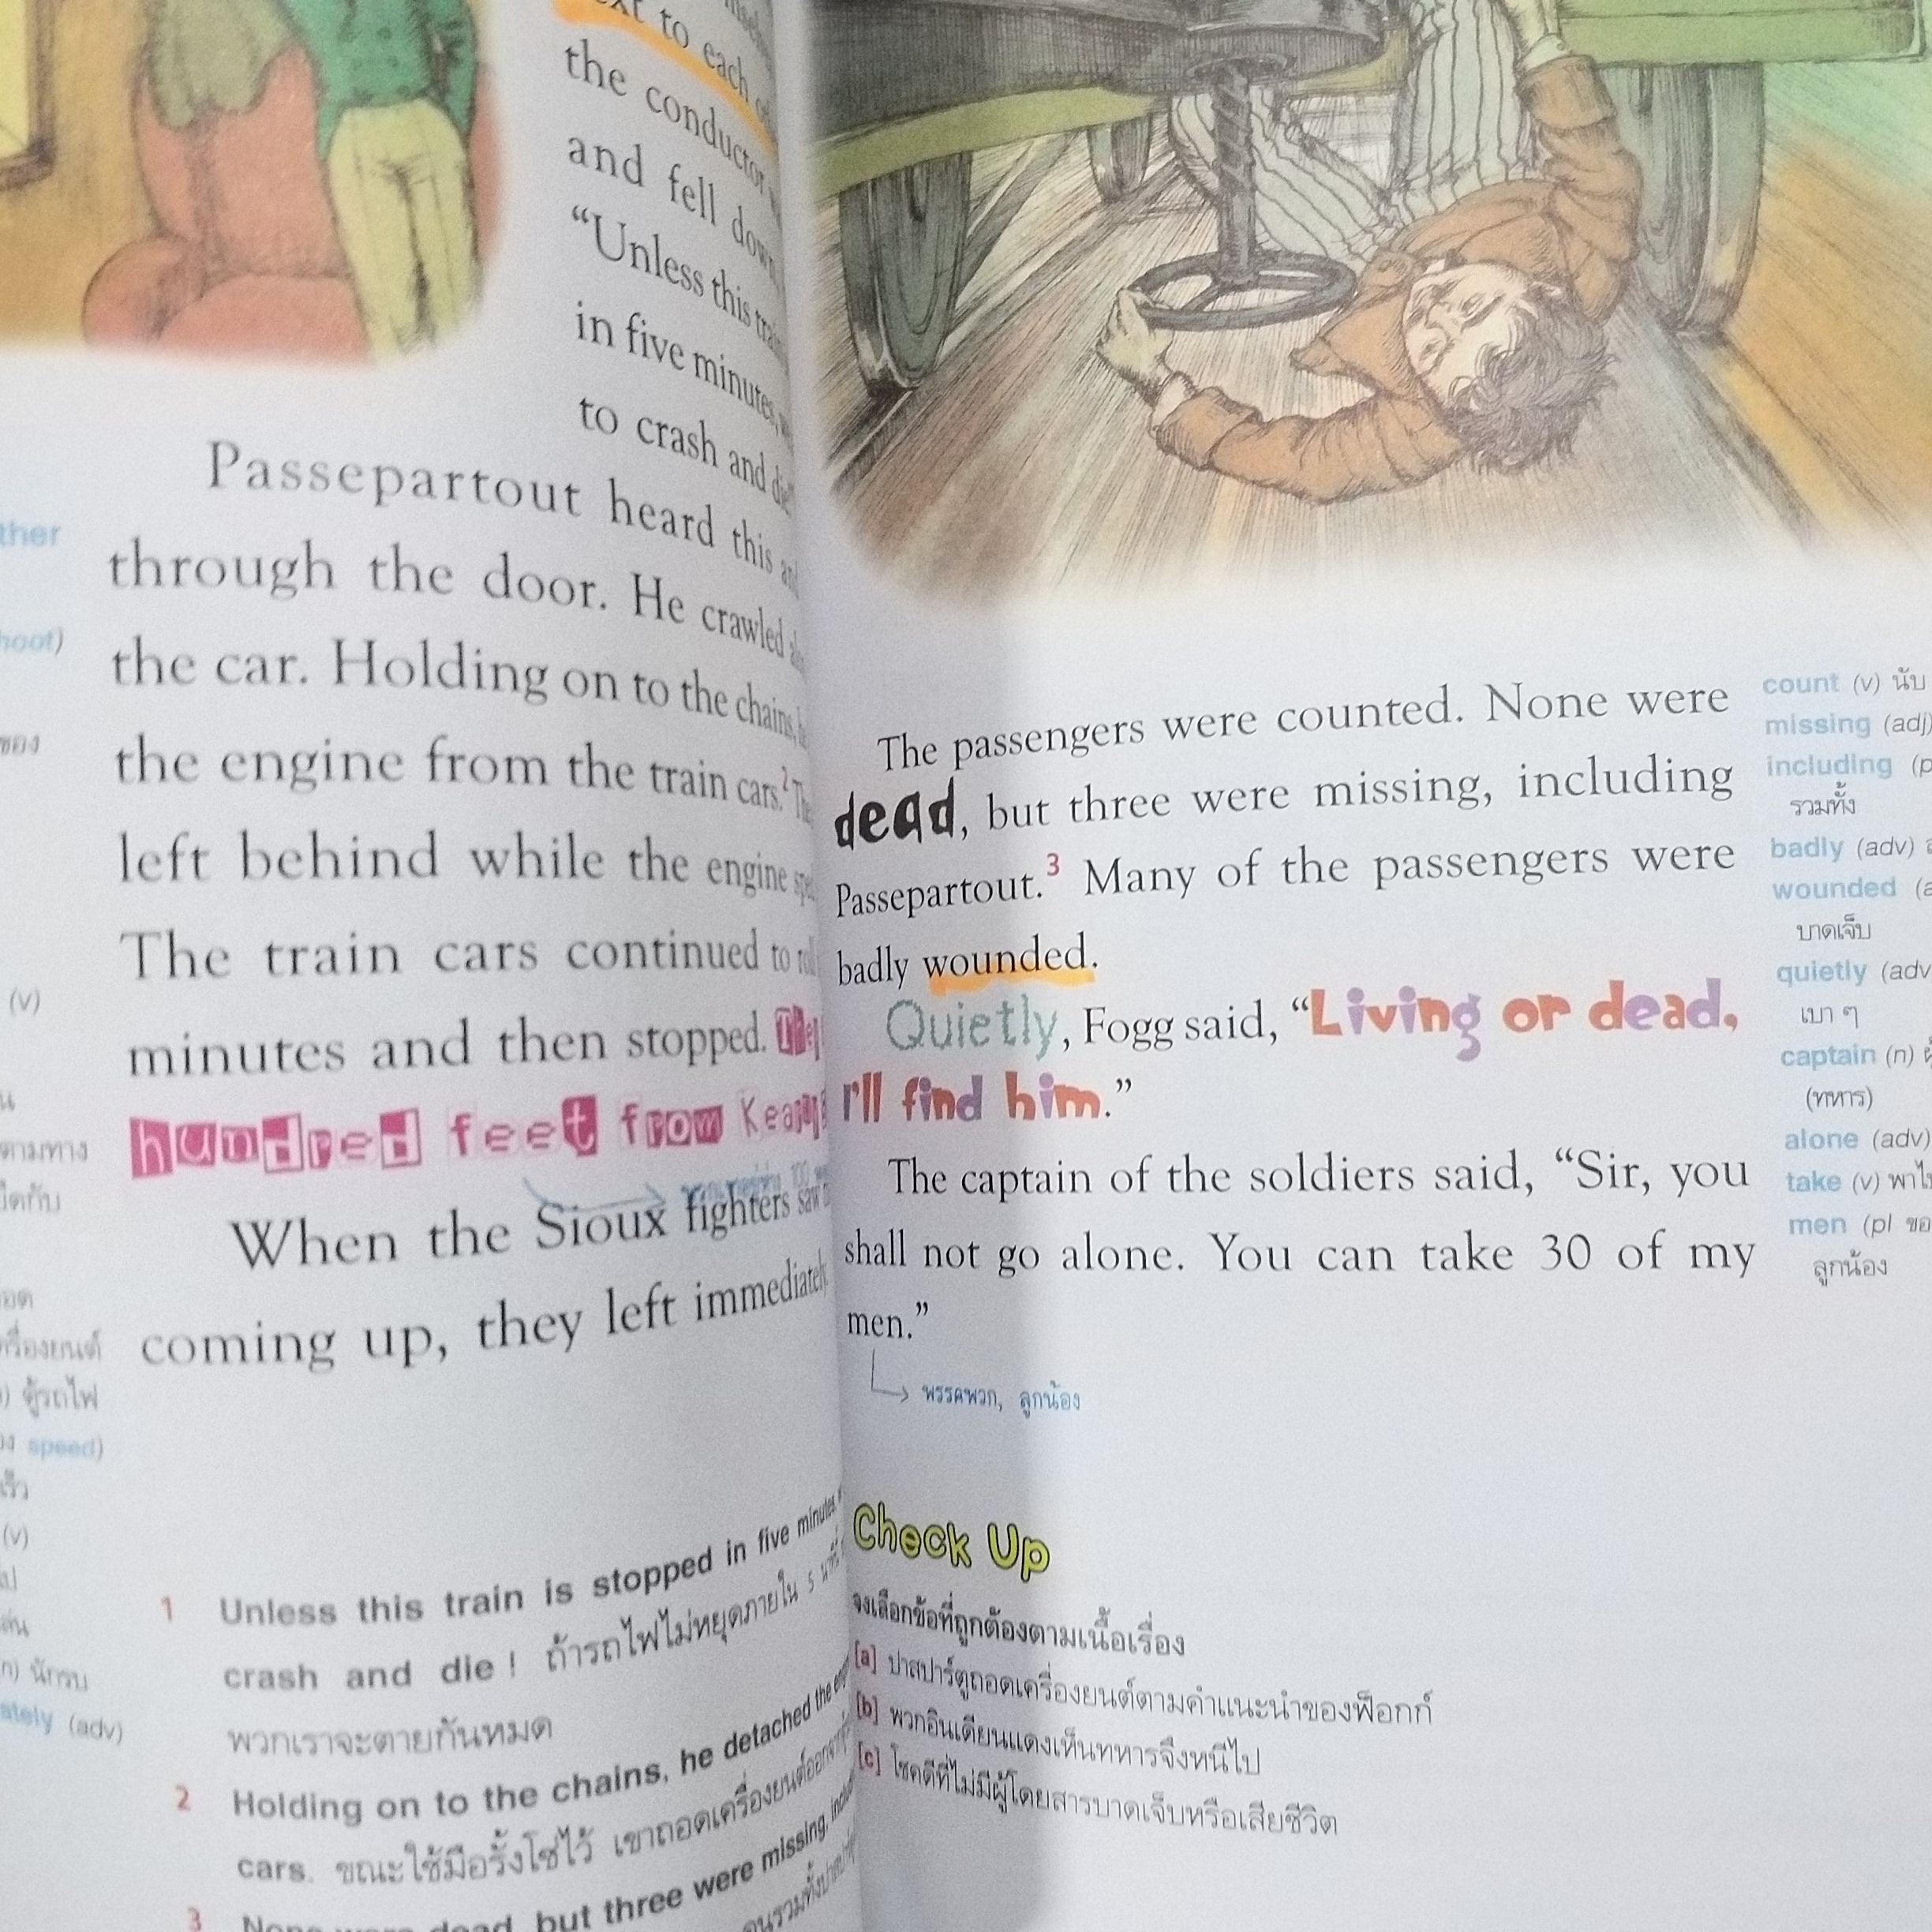 to each
the conductor
and fell down
“Unless this
in five minutes,
to crash and
Passepartout heard this
through the door. He crawled
the car. Holding on to the chains,
the engine from the train cars.2
left behind while the engine
The train cars continued to
minutes and then stopped.
hundred feet from
When the Sioux fighters saw
coming up, they left immediately
ther
hoot)
ของ
(v)
ตามทาง
ตู้รถไฟ
speed)
(v)
นักรบ
ately (adv)
1 Unless this train is stopped in five minutes,
crash and die ! ถ้ารถไฟไม่หยุดภายใน 5 นาที
พวกเราจะตายกันหมด
2 Holding on to the chains, he detached the
cars. ขณะใช้มือรั้งโซ่ไว้ เขาถอดเครื่องยนต์ออกจาก
3 None were dead, but three were missing,
The passengers were counted. None were
dead, but three were missing, including
Passepartout.3 Many of the passengers were
badly wounded.
Quietly, Fogg said, “Living or dead,
I'll find him.”
The captain of the soldiers said, “Sir, you
shall not go alone. You can take 30 of my
men.”
พรรคพวก, ลูกน้อง
count (v) นับ
missing (adj)
including
รวมทั้ง
badly (adv)
wounded
บาดเจ็บ
quietly (adv
เบา ๆ
captain (n)
(ทหาร)
alone (adv)
take (v) พาไป
men (pl ของ
ลูกน้อง
Check Up
จงเลือกข้อที่ถูกต้องตามเนื้อเรื่อง
[a] ปาสปาร์ตูถอดเครื่องยนต์ตามคำแนะนำของฟ็อกก์
[b] พวกอินเดียนแดงเห็นทหารจึงหนีไป
[c] โชคดีที่ไม่มีผู้โดยสารบาดเจ็บหรือเสียชีวิต